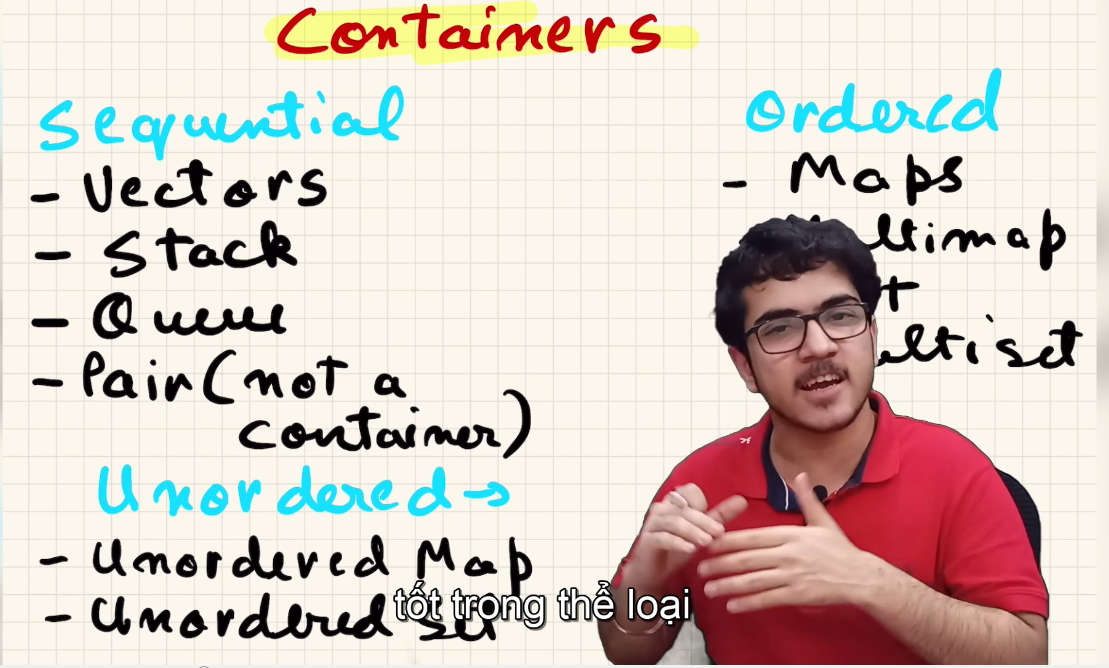 Containers
Sequential
- Vectors
- Stack
- Queue
- Pair (not a
container)
Unordered →
- Unordered Map
- Unordered Set
Ordered
- Maps
ltimap
t
ltiset
tốt trong thể loại